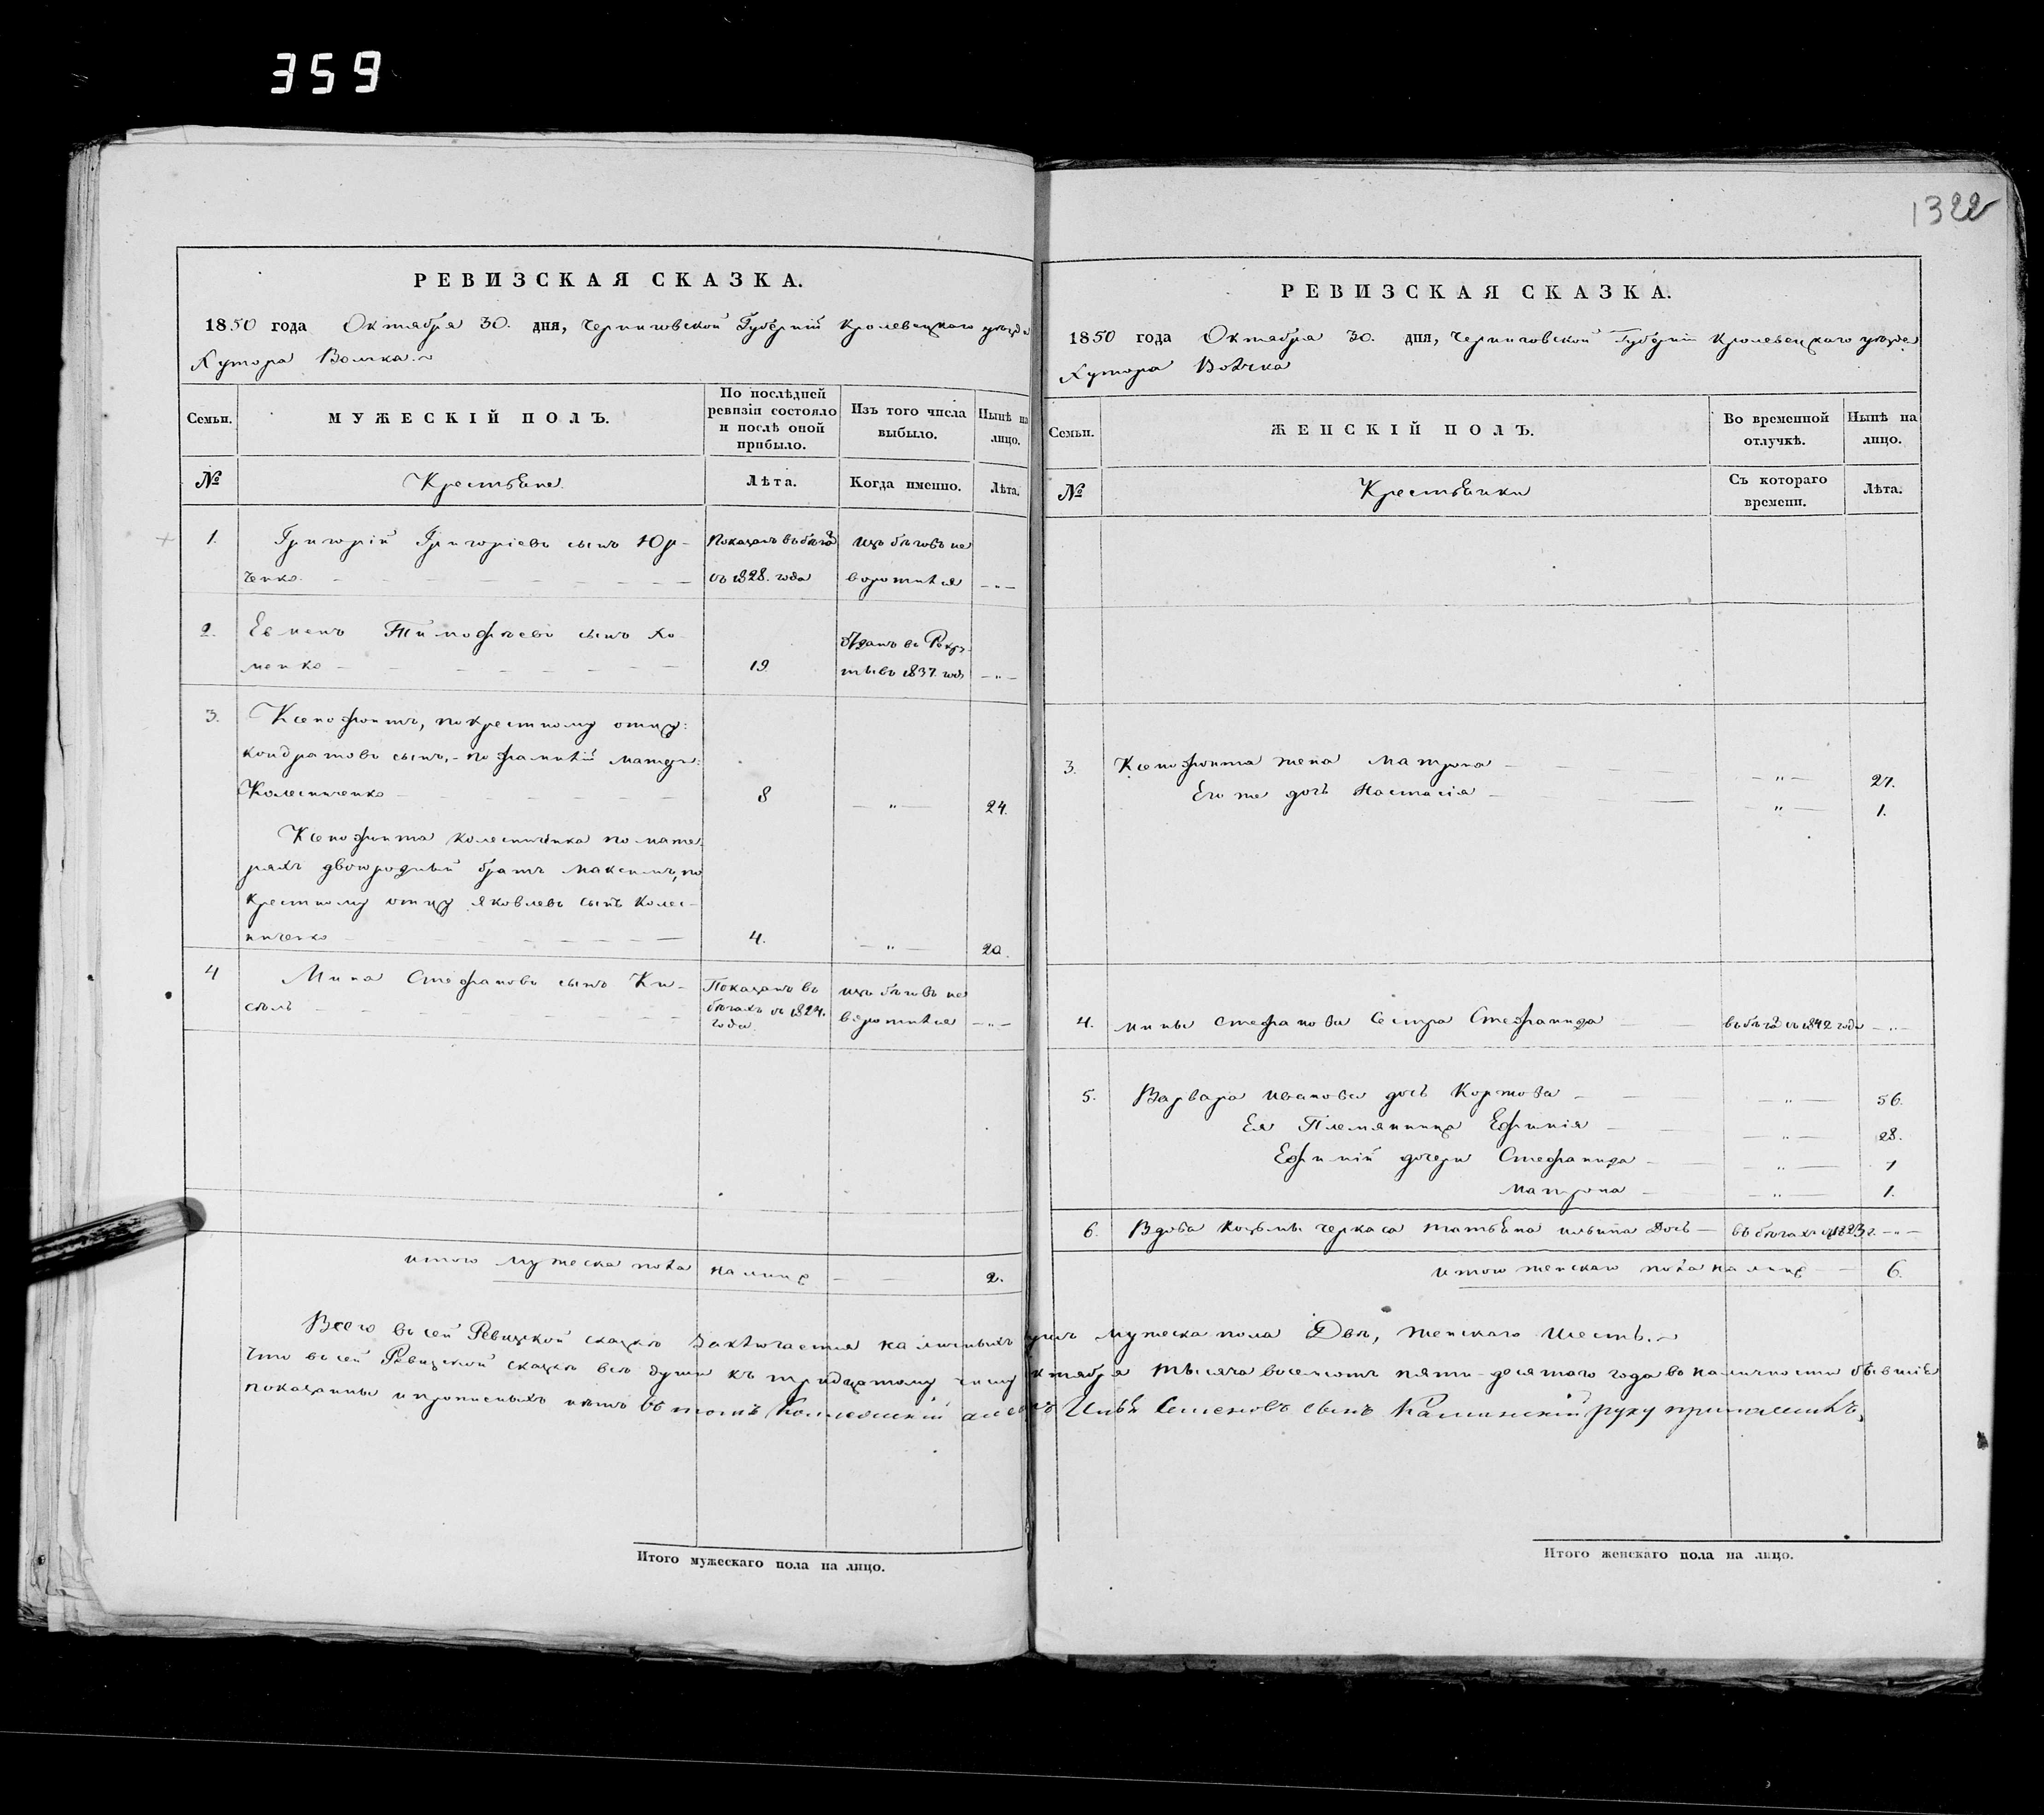 359
1322
РЕВИЗСКАЯ СКАЗКА.
1850 года Октября 30. дня, Черниговской Губерніи Кролевецкаго уѣзда
Хутора Волчка.
Семьи.
МУЖЕСКІЙ ПОЛЪ.
По послѣдней ревизіи состояло и послѣ оной прибыло.
Изъ того числа выбыло.
Нынѣ на лицо.
№
Крестьяне.
Лѣта.
Когда именно.
Лѣта.
1. Григорій Григоріевъ сынъ Юр- Показанъ въ бѣгахъ изъ бѣговъ не
ченко съ 1828. года воротился — „ —
2. Евменъ Тимофѣевъ сынъ Хо- Отданъ въ Рекру-
менко 19 ты въ 1837. году — „ —
3. Ксенофонтъ, по крестному отцу:
Кондратовъ сынъ, - по фамиліи матери:
Колесниченко 8 — „ — 24.
Ксенофонта Колесниченка по мате-
рямъ двоюродный братъ Максимъ, по
крестному отцу Яковлевъ сынъ Колес-
ниченко 4. — „ — 20.
4 Мина Стефановъ сынъ Ки- Показанъ въ изъ бѣговъ не
сѣль бѣгахъ съ 1824. года воротился — „ —
итого мужеска пола на лицо — — 2.
РЕВИЗСКАЯ СКАЗКА.
1850 года Октября 30. дня, Черниговской Губерніи Кролевецкаго уѣзда
Хутора Волчка
Семьи.
ЖЕНСКІЙ ПОЛЪ.
Во временной отлучкѣ.
Нынѣ на лицо.
№
Крестьянки
Съ котораго времени.
Лѣта.
3. Ксенофонта жена Матрона — „ — 27.
Его же дочь Настасія — „ — 1.
4. Мины Стефанова Сестра Стефанида въ бѣгахъ съ 1842 года — „ —
5. Варвара Иванова дочь — „ — 56.
Ея Племянница Ефимія — „ — 28.
Ефиміи дочери Стефанида — „ — 7
Матрона — „ — 1.
6. Вдова Козьмы Черкаса Татьяна Ильина Дочь — въ бѣгахъ съ 1823 г. — „ —
итого женскаго пола на лицо — 6.
Всего въ сей Ревизской сказкѣ заключается наличныхъ душъ мужеска пола Двѣ, женскаго Шесть.
Что въ сей Ревизской сказкѣ всѣ души къ тридцатому числу Октября тысяча восемсотъ пяти-десятого года въ наличности бывшіе
показанны и прописныхъ нѣтъ въ томъ Коллежскій Илья Семеновъ сынъ руку приложилъ.
Итого мужескаго пола на лицо.
Итого женскаго пола на лицо.